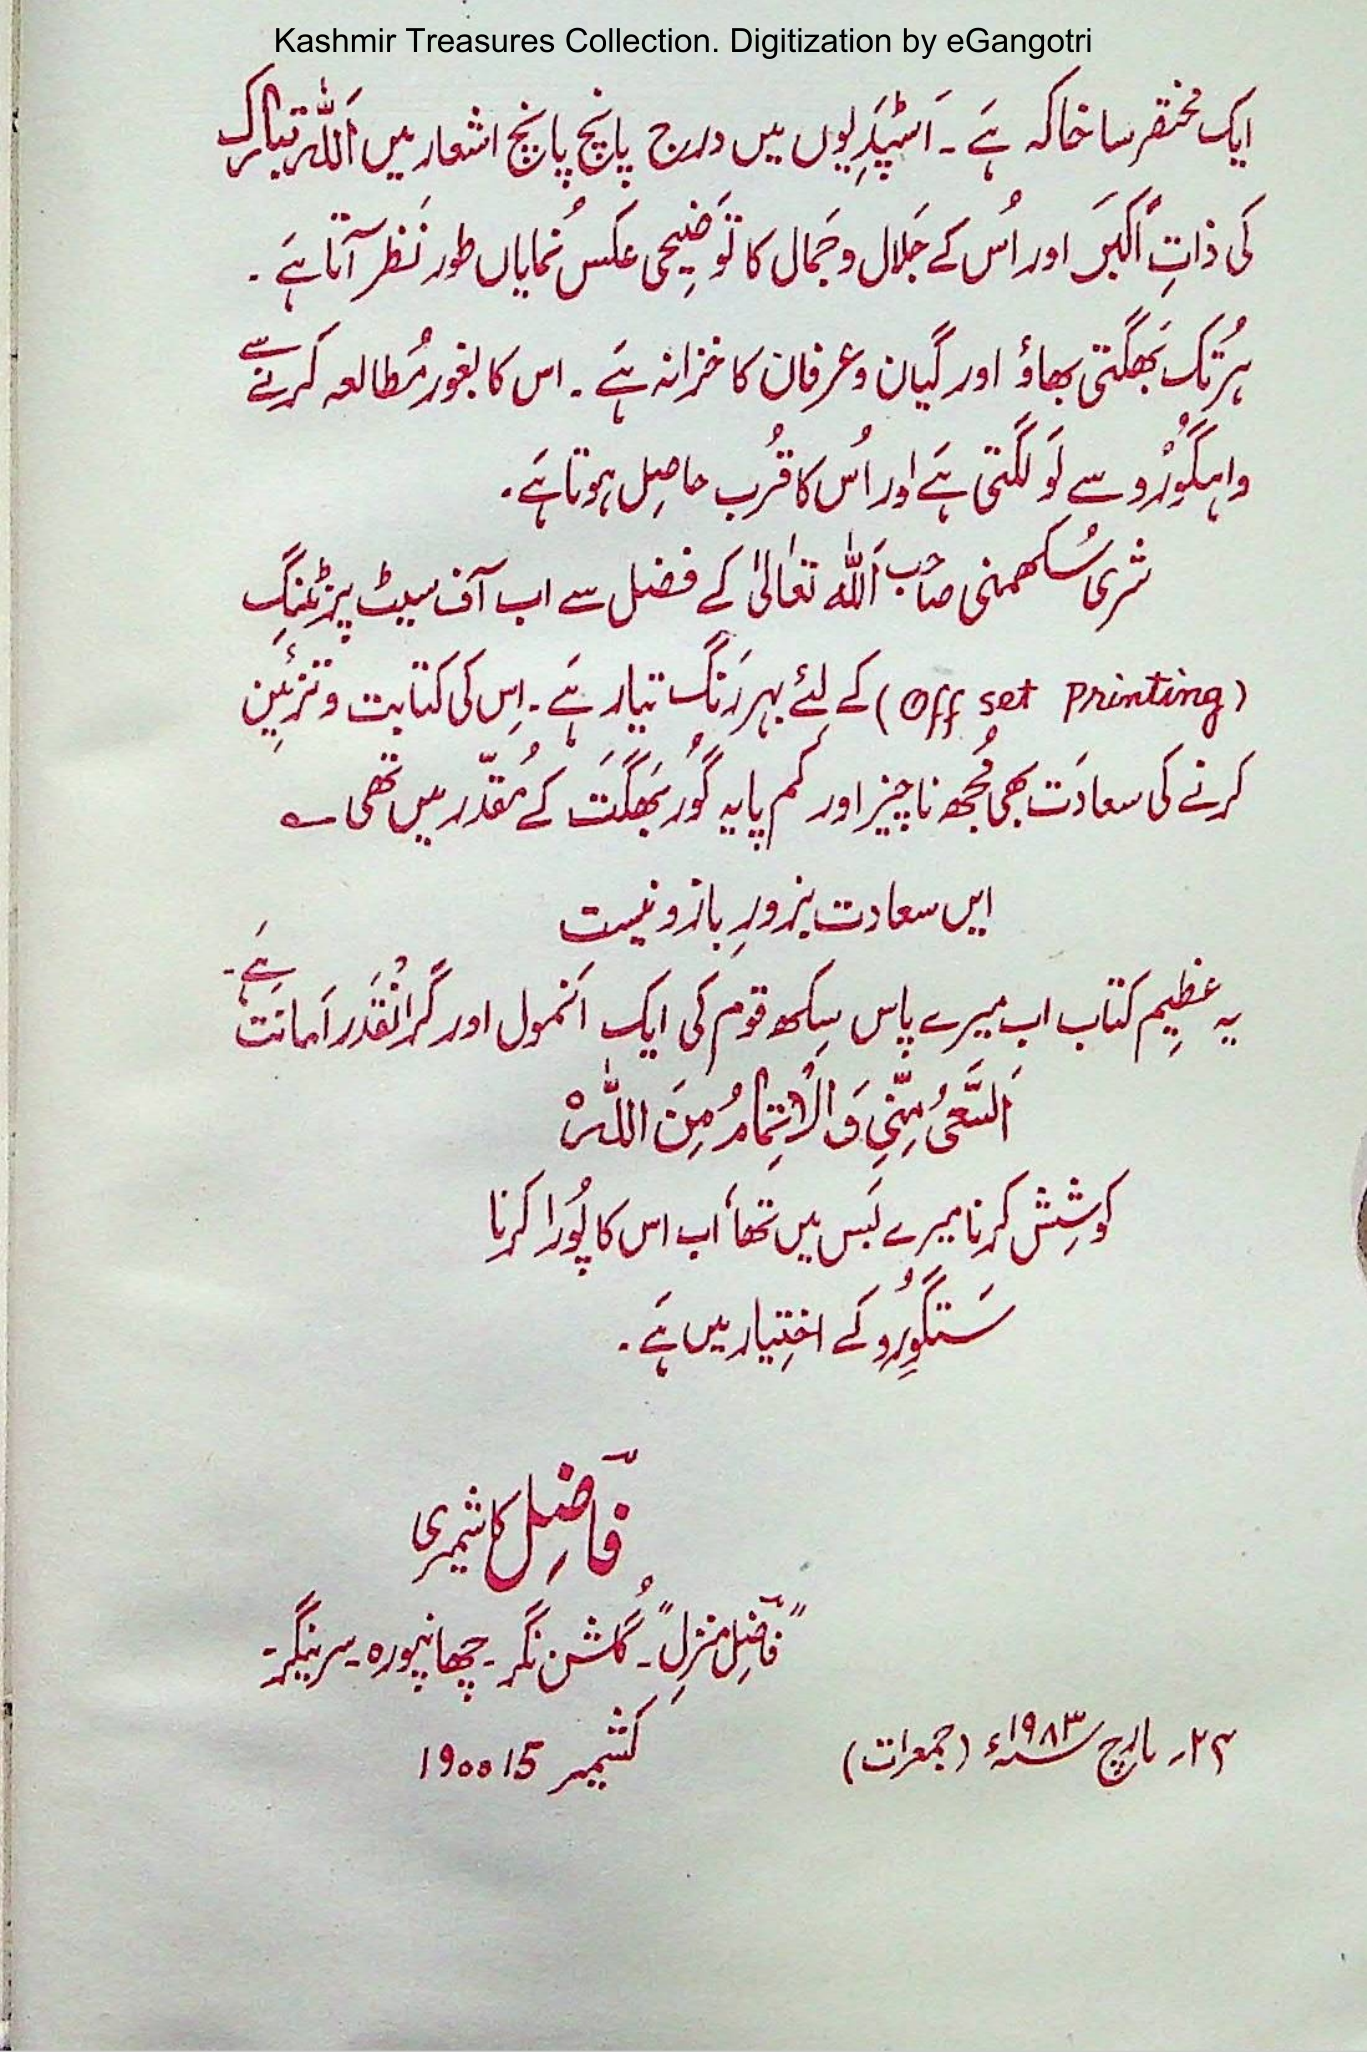 Kashmir Treasures Collection. Digitization by eGangotri
ایک مختصر سا خاکہ ہَے ۔ اَسٹپَدِیوں میں درج پانچ پانچ اشعار میں اَللہ تبارک
کی ذاتِ اَکبَر اور اُس کے جَلال و جَمال کا تَوضِیحی عکس نُمایاں طور نَظر آتا ہَے ۔
ہر تُک بَھگتی بھاؤ اور گیان و عرفان کا خزانہ ہَے ۔ اس کا بغور مُطالعہ کرنے سے
واہگُورُو سے لَو لَگتی ہَے اور اُس کا قُرب حاصِل ہوتا ہَے ۔
شری سُکھمنی صاحب اَللہ تعَالیٰ کے فضل سے اب آف سیٹ پرِنٹنگ
(Off set Printing) کے لِئے بہر رَنگ تیار ہَے ۔ اِس کی کتابت و تزئین
کرنے کی سعادَت بھی مُجھ ناچیز اور کم پایہ گُور بَھگَت کے مُقدّر میں تھی ؎
ایں سعادت بزورِ بازو نیست
یہ عظیم کتاب اب میرے پاس سِکھ قوم کی ایک اَنمول اور گَرانْقَدر اَمانَت ہَے ۔
اَلسَّعیُ مِنّیِ وَالْاِتِمَامُ مِنَ اللّٰہْ
کوشِش کرنا میرے بَس میں تھا، اب اس کا پُورا کرنا
سَتگُورُو کے اختِیار میں ہَے ۔
فاضِل کاشمیری
”فاضِل منزِل“ ۔ گُلشن نگر ۔ چھانپورہ ۔ سرینگر ۔
۲۴؍ مارچ سنہ ۱۹۸۳ء (جمعرات)
کشمیر 190015